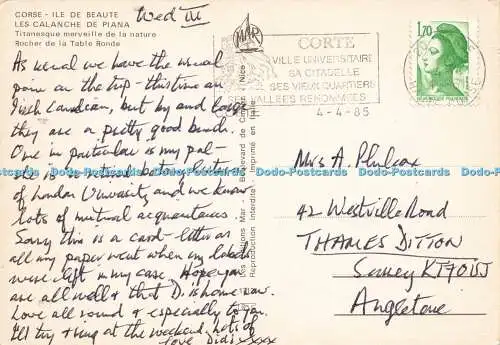 CORSE - ILE DE BEAUTE
LES CALANCHE DE PIANA
Titanesque merveille de la nature
Rocher de la Table Ronde
Wed
As usual we have the usual
pain on the trip - this time an
Irish Canadian, but by and large
they are a pretty good bunch.
One in particular is my pal -
he is a retired botany lecturer
of London University and we know
lots of mutual acquantances.
Sorry this is a card - letter as
all my paper went when my labels
were left in my case. Hope you
are all well & that D. is home now.
Love all round & especially to you.
I'll try & ring at the weekend. Lots of
love Didi xxxx
MAR
Editions Mar - Boulevard de Nice
Reproduction interdite Imprimé en Italie
CORTE
VILLE UNIVERSITAIRE
SA CITADELLE
SES VIEUX QUARTIERS
ALLEES RENOMMEES
4-4-85
1,70
REPUBLIQUE FRANCAISE
Mrs A. Philcox
42 Westville Road
THAMES DITTON
Surrey KT7 0UJ
Angleterre
Dodo-Postcards Dodo-Postcards Dodo-Postcards Dodo-Postcards